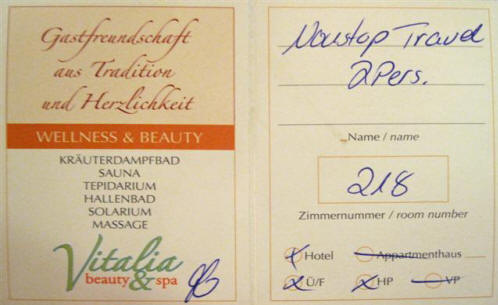 Gastfreundschaft
aus Tradition
und Herzlichkeit
WELLNESS & BEAUTY
KRÄUTERDAMPFBAD
SAUNA
TEPIDARIUM
HALLENBAD
SOLARIUM
MASSAGE
Vitalia
beauty & spa
Nonstop Travel
2 Pers.
Name / name
218
Zimmernummer / room number
Hotel Appartmenthaus
Ü/F HP VP